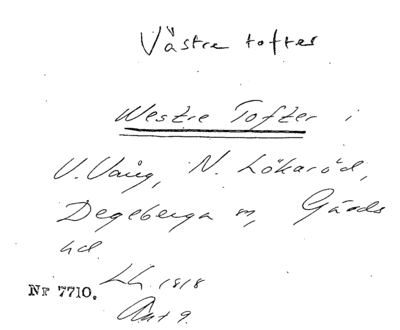 Västre tofter
Westre Tofter i
V. Vång, N. Lökaröd,
Degeberga sn, Gärds
hd.
Lh. 1818
Nr 7710.
Akt 9.